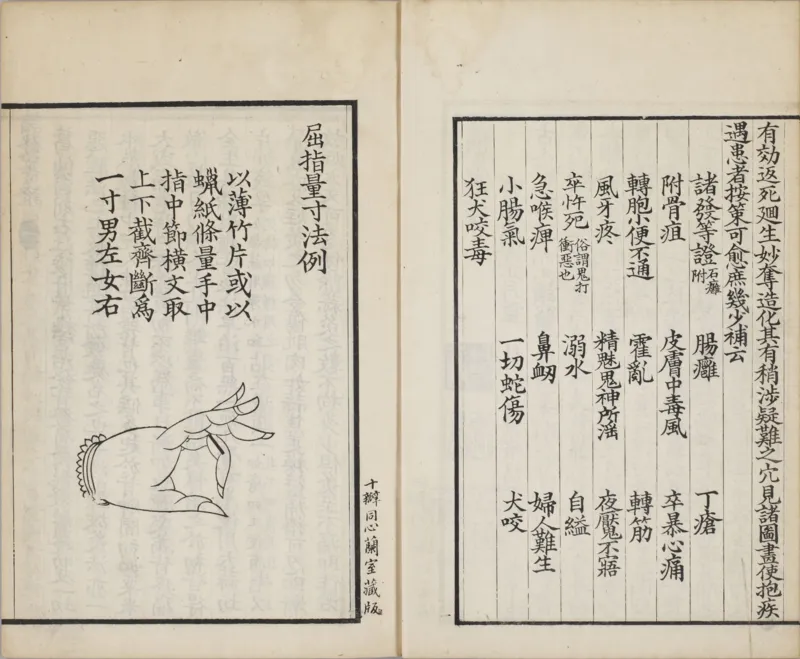 有効返死廻生妙奪造化其有稍涉疑難之穴見諸圖畫使抱疾
遇患者按策可愈庶幾少補云
諸發等證石癰附 腸癰 丁瘡
附骨疽 皮膚中毒風 卒暴心痛
轉胞小便不通 霍亂 轉筋
風牙疼 精魅鬼神所淫 夜魘不寤
卒忤死俗謂鬼打衝惡也 溺水 自縊
急喉痺 鼻衂 婦人難生
小腸氣 一切蛇傷 犬咬
狂犬咬毒
十瓣同心蘭室藏版
屈指量寸法例
以薄竹片或以
蠟紙條量手中
指中節橫文取
上下截齊斷爲
一寸男左女右